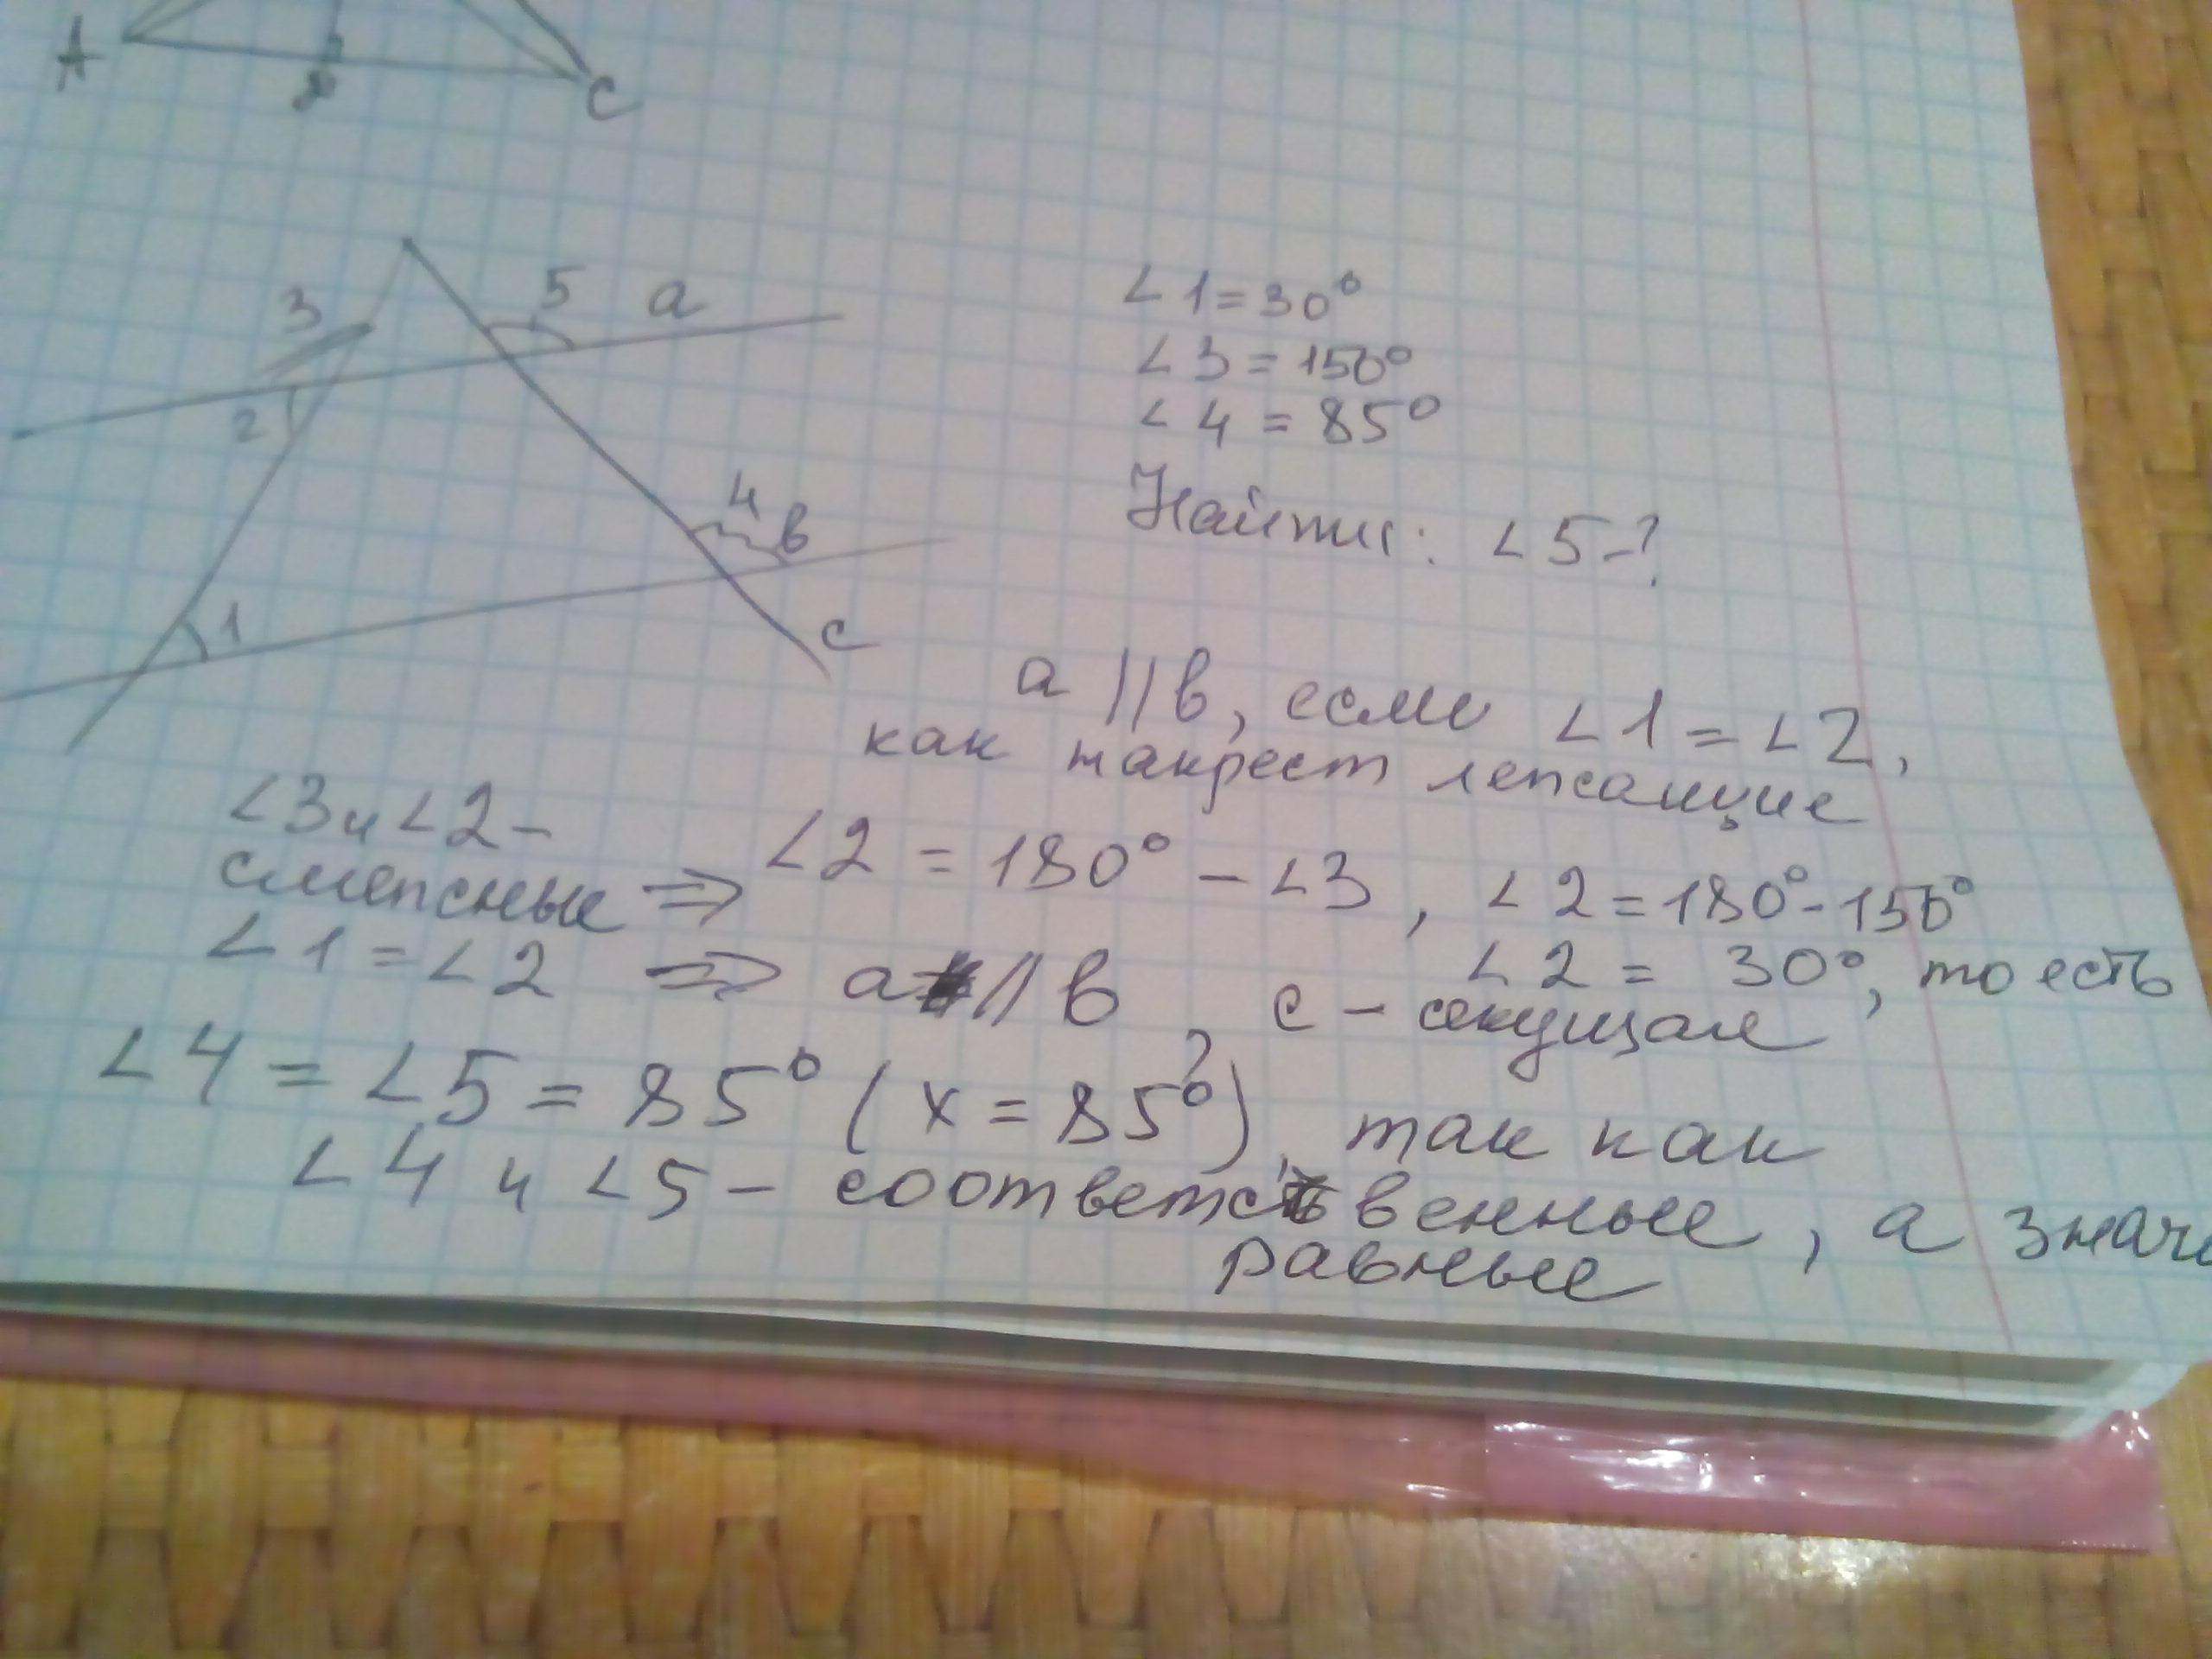 A
C
3
5
a
2
4
в
1
c
∠1=30°
∠3=150°
∠4=85°
Найти: ∠5-?
a || в, если ∠1=∠2,
как накрест лежащие
∠3 и ∠2 -
смежные ⇒ ∠2 = 180° - ∠3, ∠2=180°-150°
∠2 = 30°, то есть
∠1=∠2 ⇒ a || в, c - секущая
∠4 = ∠5 = 85° (x = 85°), так как
∠4 и ∠5 - соответственные, а знач
равные